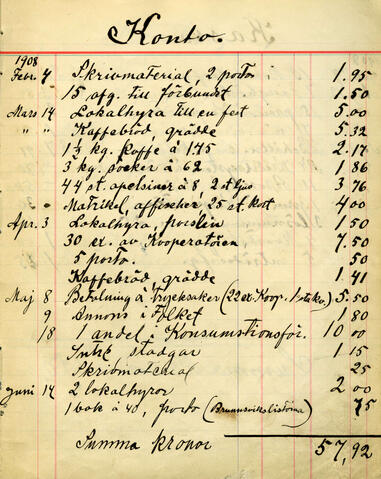 Konto.
1908
Febr. 4 Skrivmaterial, 2 porto 1.95
15 afg. till förbundet 1.50
Mars 14 Lokalhyra till en fest 5.00
" " Kaffebröd, grädde 5.32
1½ kg. kaffe à 1.45 2.17
3 kg. socker à 62 1 86
44 st. apelsiner à 8, 2 st ljus 3 76
Matrikel affischer, 25 st. kort 4 00
Apr. 3 Lokalhyra, porslin 1 50
30 ex. av Kooperatören 7.50
5 porto. 50
Kaffebröd, grädde 1.41
Maj 8 Betalning à (22 ex Koop. 5.50
9 Annons i Folket 1 80
18 1 andel i Konsumtionsför. 10 00
Intr. stadgar 1 15
Skrivmaterial 25
Juni 14 2 lokalhyror 2 00
1 bok à 40, porto (Brunnsvikslistorna) 75
Summa kronor 57,92